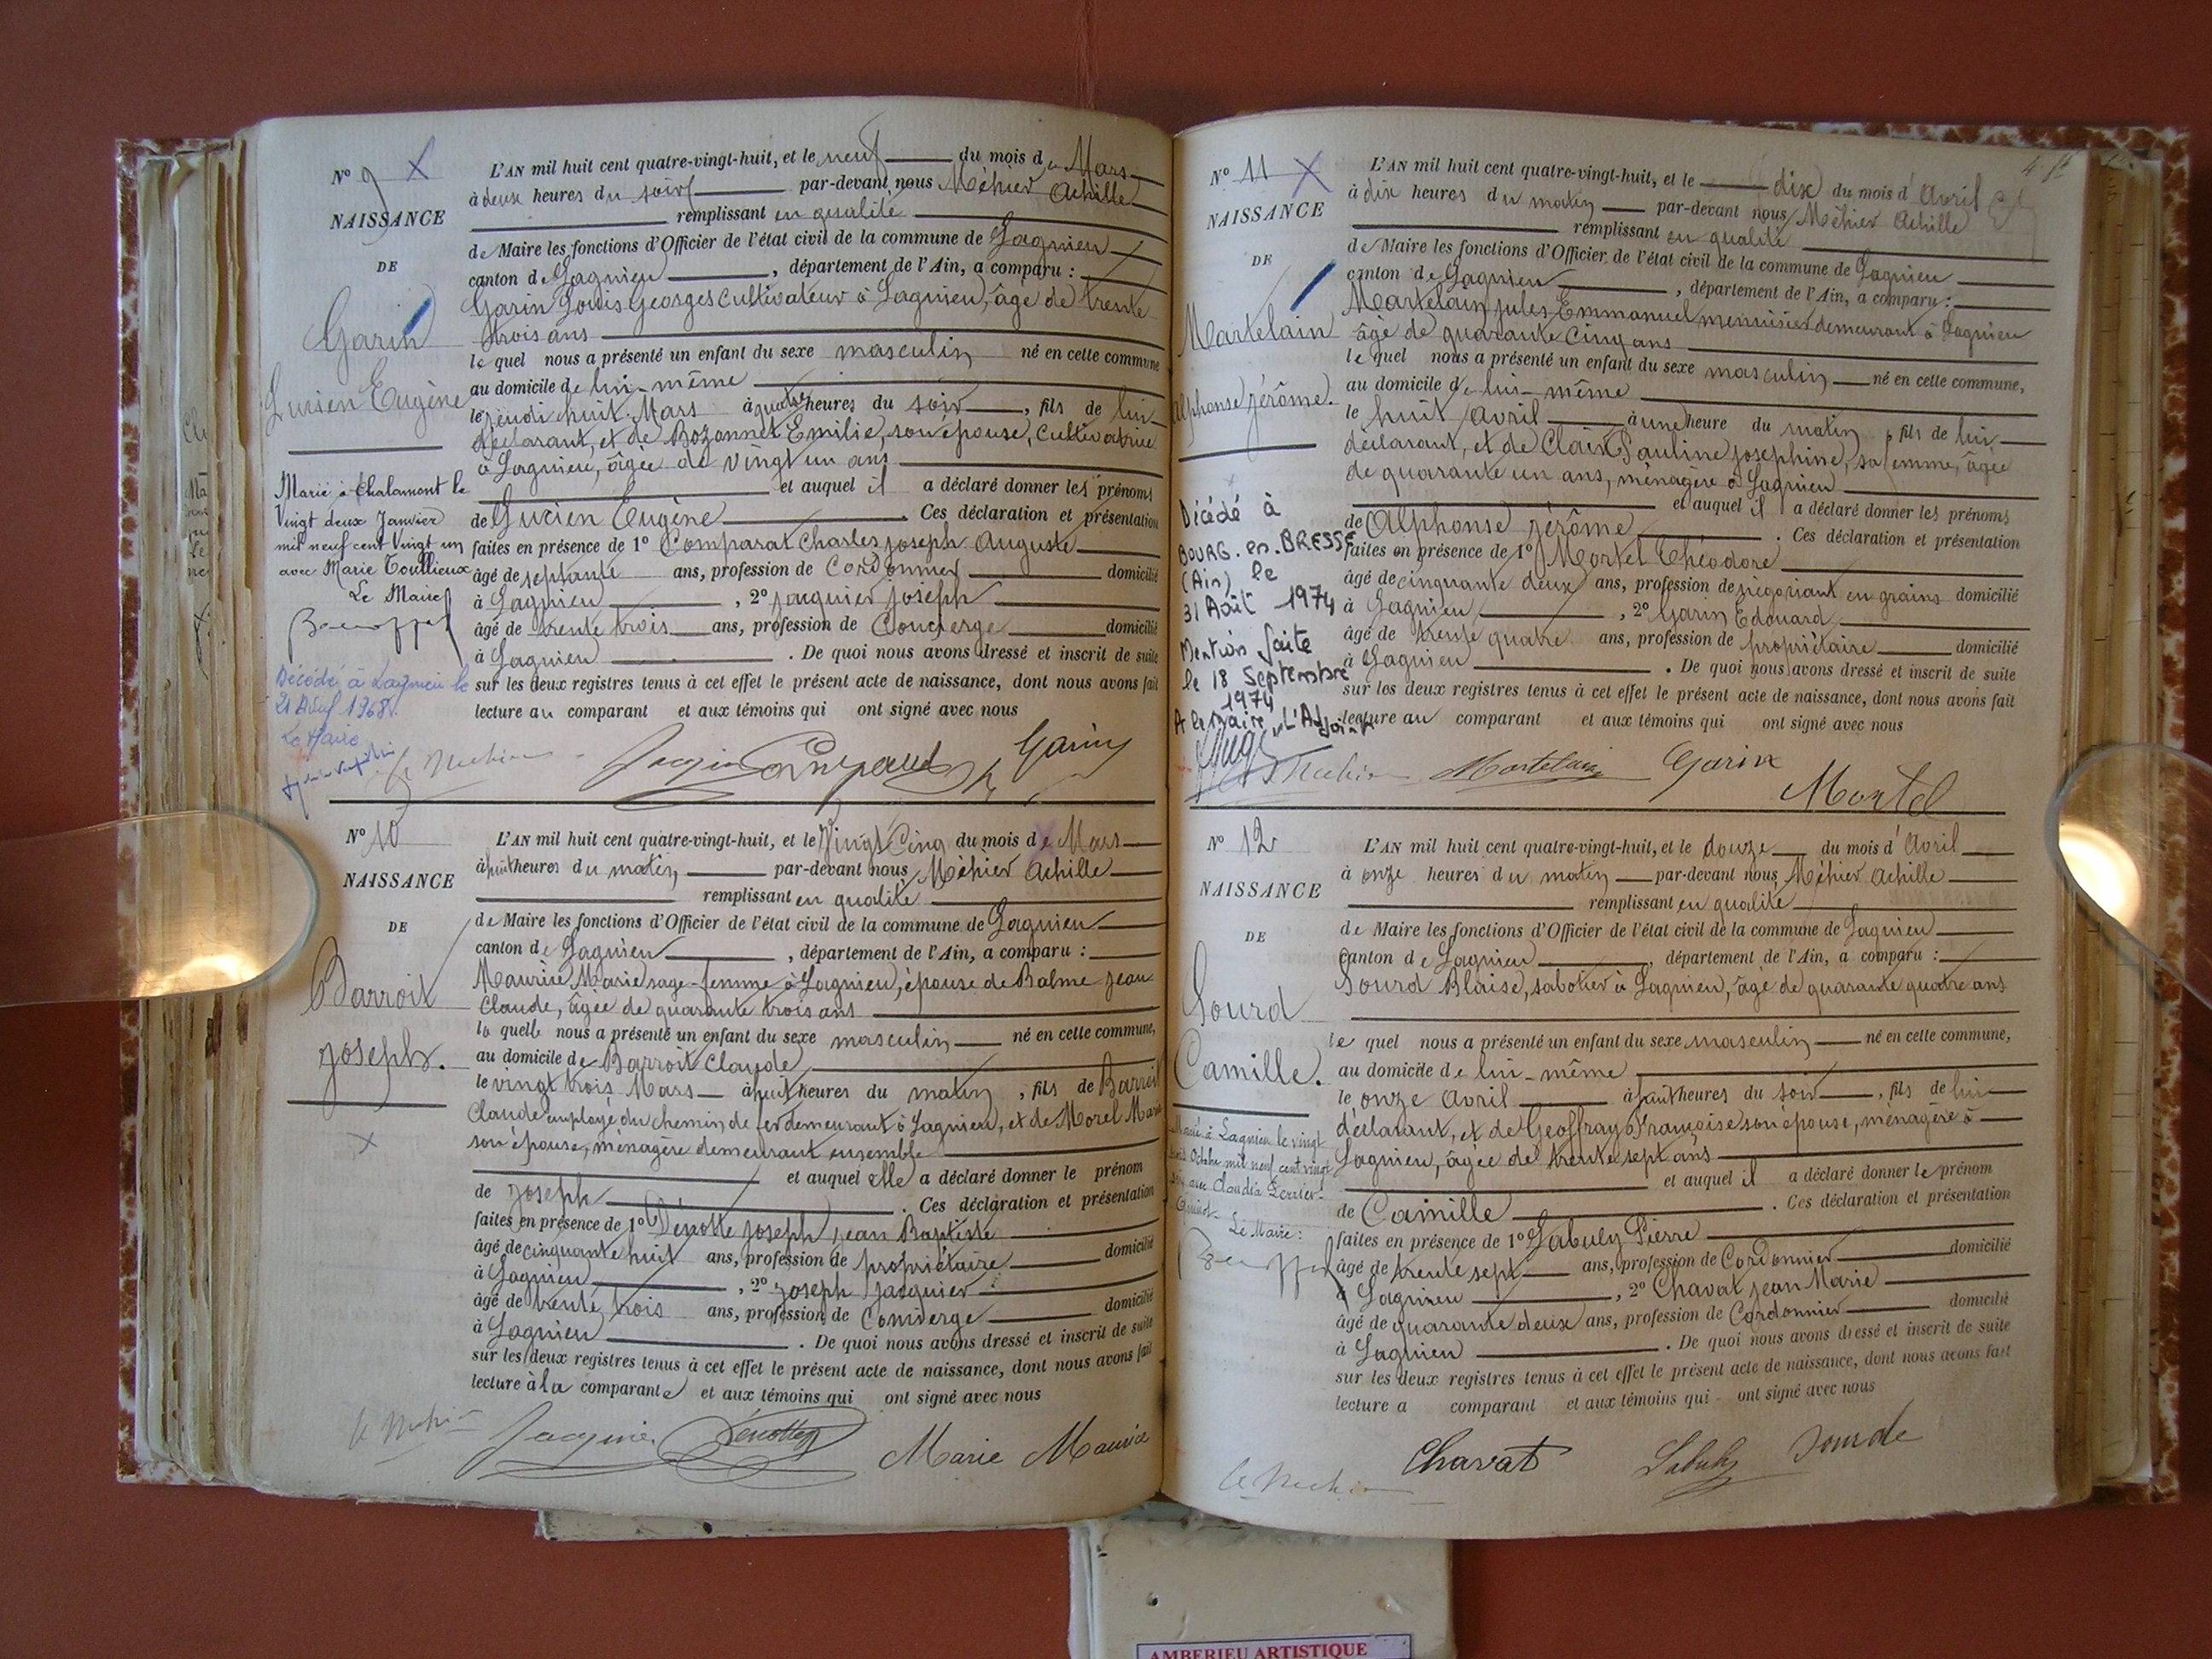 N° 9
NAISSANCE
DE
Garin
Lucien Eugène
Marié à Chalamont le
Vingt deux Janvier
mil neuf cent Vingt un
avec Marie Toullieux
Le Maire
Décédé à Lagnieu le
21 Août 1968.
Le Maire
L'AN mil huit cent quatre-vingt-huit, et le neuf du mois de Mars
à deux heures du soir par-devant nous Méhier Achille
remplissant en qualité
de Maire les fonctions d'Officier de l'état civil de la commune de Lagnieu
canton de Lagnieu, département de l'Ain, a comparu :
Garin Louis Georges Cultivateur à Lagnieu, âgé de trente
trois ans
le quel nous a présenté un enfant du sexe masculin né en cette commune
au domicile de lui-même
le jeudi huit Mars à quatre heures du soir, fils de lui
déclarant, et de Bozonnet Emilie, son épouse, Cultivatrice
à Lagnieu, âgée de vingt un ans
et auquel il a déclaré donner les prénoms
de Lucien Eugène. Ces déclaration et présentation
faites en présence de 1° Comparat Charles joseph Auguste
âgé de septante ans, profession de Cordonnier domicilié
à Lagnieu, 2° jacquier joseph
âgé de trente trois ans, profession de Concierge domicilié
à Lagnieu. De quoi nous avons dressé et inscrit de suite
sur les deux registres tenus à cet effet le présent acte de naissance, dont nous avons fait
lecture au comparant et aux témoins qui ont signé avec nous
Garin
N° 10
NAISSANCE
DE
Barroit
joseph.
L'AN mil huit cent quatre-vingt-huit, et le Vingt Cinq du mois de Mars
à huit heures du matin, par-devant nous Méhier Achille
remplissant en qualité
de Maire les fonctions d'Officier de l'état civil de la commune de Lagnieu
canton de Lagnieu, département de l'Ain, a comparu :
Maurice Marie sage-femme à Lagnieu, épouse de Balme jean
Claude, âgée de quarante trois ans
la quelle nous a présenté un enfant du sexe masculin né en cette commune,
au domicile de Barroit Claude
le vingt trois Mars à huit heures du matin, fils de Barroit
Claude employé du chemin de fer demeurant à Lagnieu, et de Morel Marie
son épouse, ménagère demeurant ensemble
et auquel elle a déclaré donner le prénom
de joseph. Ces déclaration et présentation
faites en présence de 1° Dénotte joseph jean Baptiste
âgé de cinquante huit ans, profession de propriétaire domicilié
à Lagnieu, 2° joseph jacquier
âgé de trente trois ans, profession de Concierge domicilié
à Lagnieu. De quoi nous avons dressé et inscrit de suite
sur les deux registres tenus à cet effet le présent acte de naissance, dont nous avons fait
lecture à la comparante et aux témoins qui ont signé avec nous
Marie Maurice
N° 11
NAISSANCE
DE
Martelain
Alphonse jérôme.
Décédé à
BOURG-en-BRESSE
(Ain) le
31 Août 1974
Mention faite
le 18 Septembre
1974
L'AN mil huit cent quatre-vingt-huit, et le dix du mois d'Avril
à dix heures du matin par-devant nous Méhier Achille
remplissant en qualité
de Maire les fonctions d'Officier de l'état civil de la commune de Lagnieu
canton de Lagnieu, département de l'Ain, a comparu :
Martelain jules Emmanuel menuisier demeurant à Lagnieu
âgé de quarante cinq ans
le quel nous a présenté un enfant du sexe masculin né en cette commune,
au domicile de lui-même
le huit Avril à une heure du matin, fils de lui
déclarant, et de Clair Pauline josephine, sa femme, âgée
de quarante un ans, ménagère à Lagnieu
et auquel il a déclaré donner les prénoms
de Alphonse jérôme. Ces déclaration et présentation
faites en présence de 1° Mortel Théodore
âgé de cinquante deux ans, profession de négociant en grains domicilié
à Lagnieu, 2° Garin Edouard
âgé de trente quatre ans, profession de propriétaire domicilié
à Lagnieu. De quoi nous avons dressé et inscrit de suite
sur les deux registres tenus à cet effet le présent acte de naissance, dont nous avons fait
lecture au comparant et aux témoins qui ont signé avec nous
Martelain Garin Mortel
N° 12
NAISSANCE
DE
Sourd
Camille.
Marié à Lagnieu le vingt
Octobre mil neuf cent vingt
avec Claudia
Le Maire :
L'AN mil huit cent quatre-vingt-huit, et le douze du mois d'Avril
à onze heures du matin par-devant nous Méhier Achille
remplissant en qualité
de Maire les fonctions d'Officier de l'état civil de la commune de Lagnieu
canton de Lagnieu, département de l'Ain, a comparu :
Sourd Blaise, sabotier à Lagnieu, âgé de quarante quatre ans
le quel nous a présenté un enfant du sexe masculin né en cette commune,
au domicile de lui-même
le onze Avril à huit heures du soir, fils de lui
déclarant, et de Geoffray Françoise son épouse, ménagère à
Lagnieu, âgée de trente sept ans
et auquel il a déclaré donner le prénom
de Camille. Ces déclaration et présentation
faites en présence de 1° Labuly Pierre
âgé de trente sept ans, profession de Cordonnier domicilié
à Lagnieu, 2° Chavat jean Marie
âgé de quarante deux ans, profession de Cordonnier domicilié
à Lagnieu. De quoi nous avons dressé et inscrit de suite
sur les deux registres tenus à cet effet le présent acte de naissance, dont nous avons fait
lecture a comparant et aux témoins qui ont signé avec nous
Chavat Labuly
AMBERIEU ARTISTIQUE